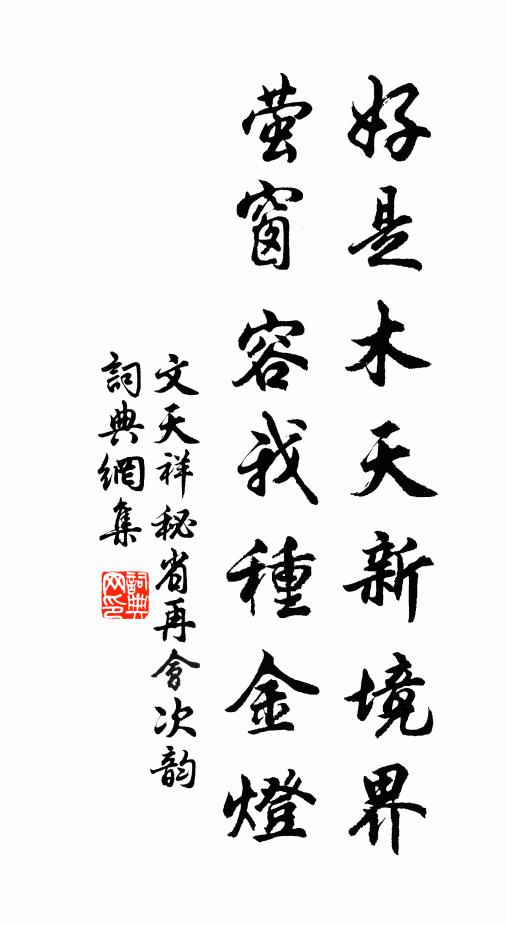 好是木天新境界
萤窗容我種金燈
文天祥秘省再會次韵
詞典網集
詞典网印